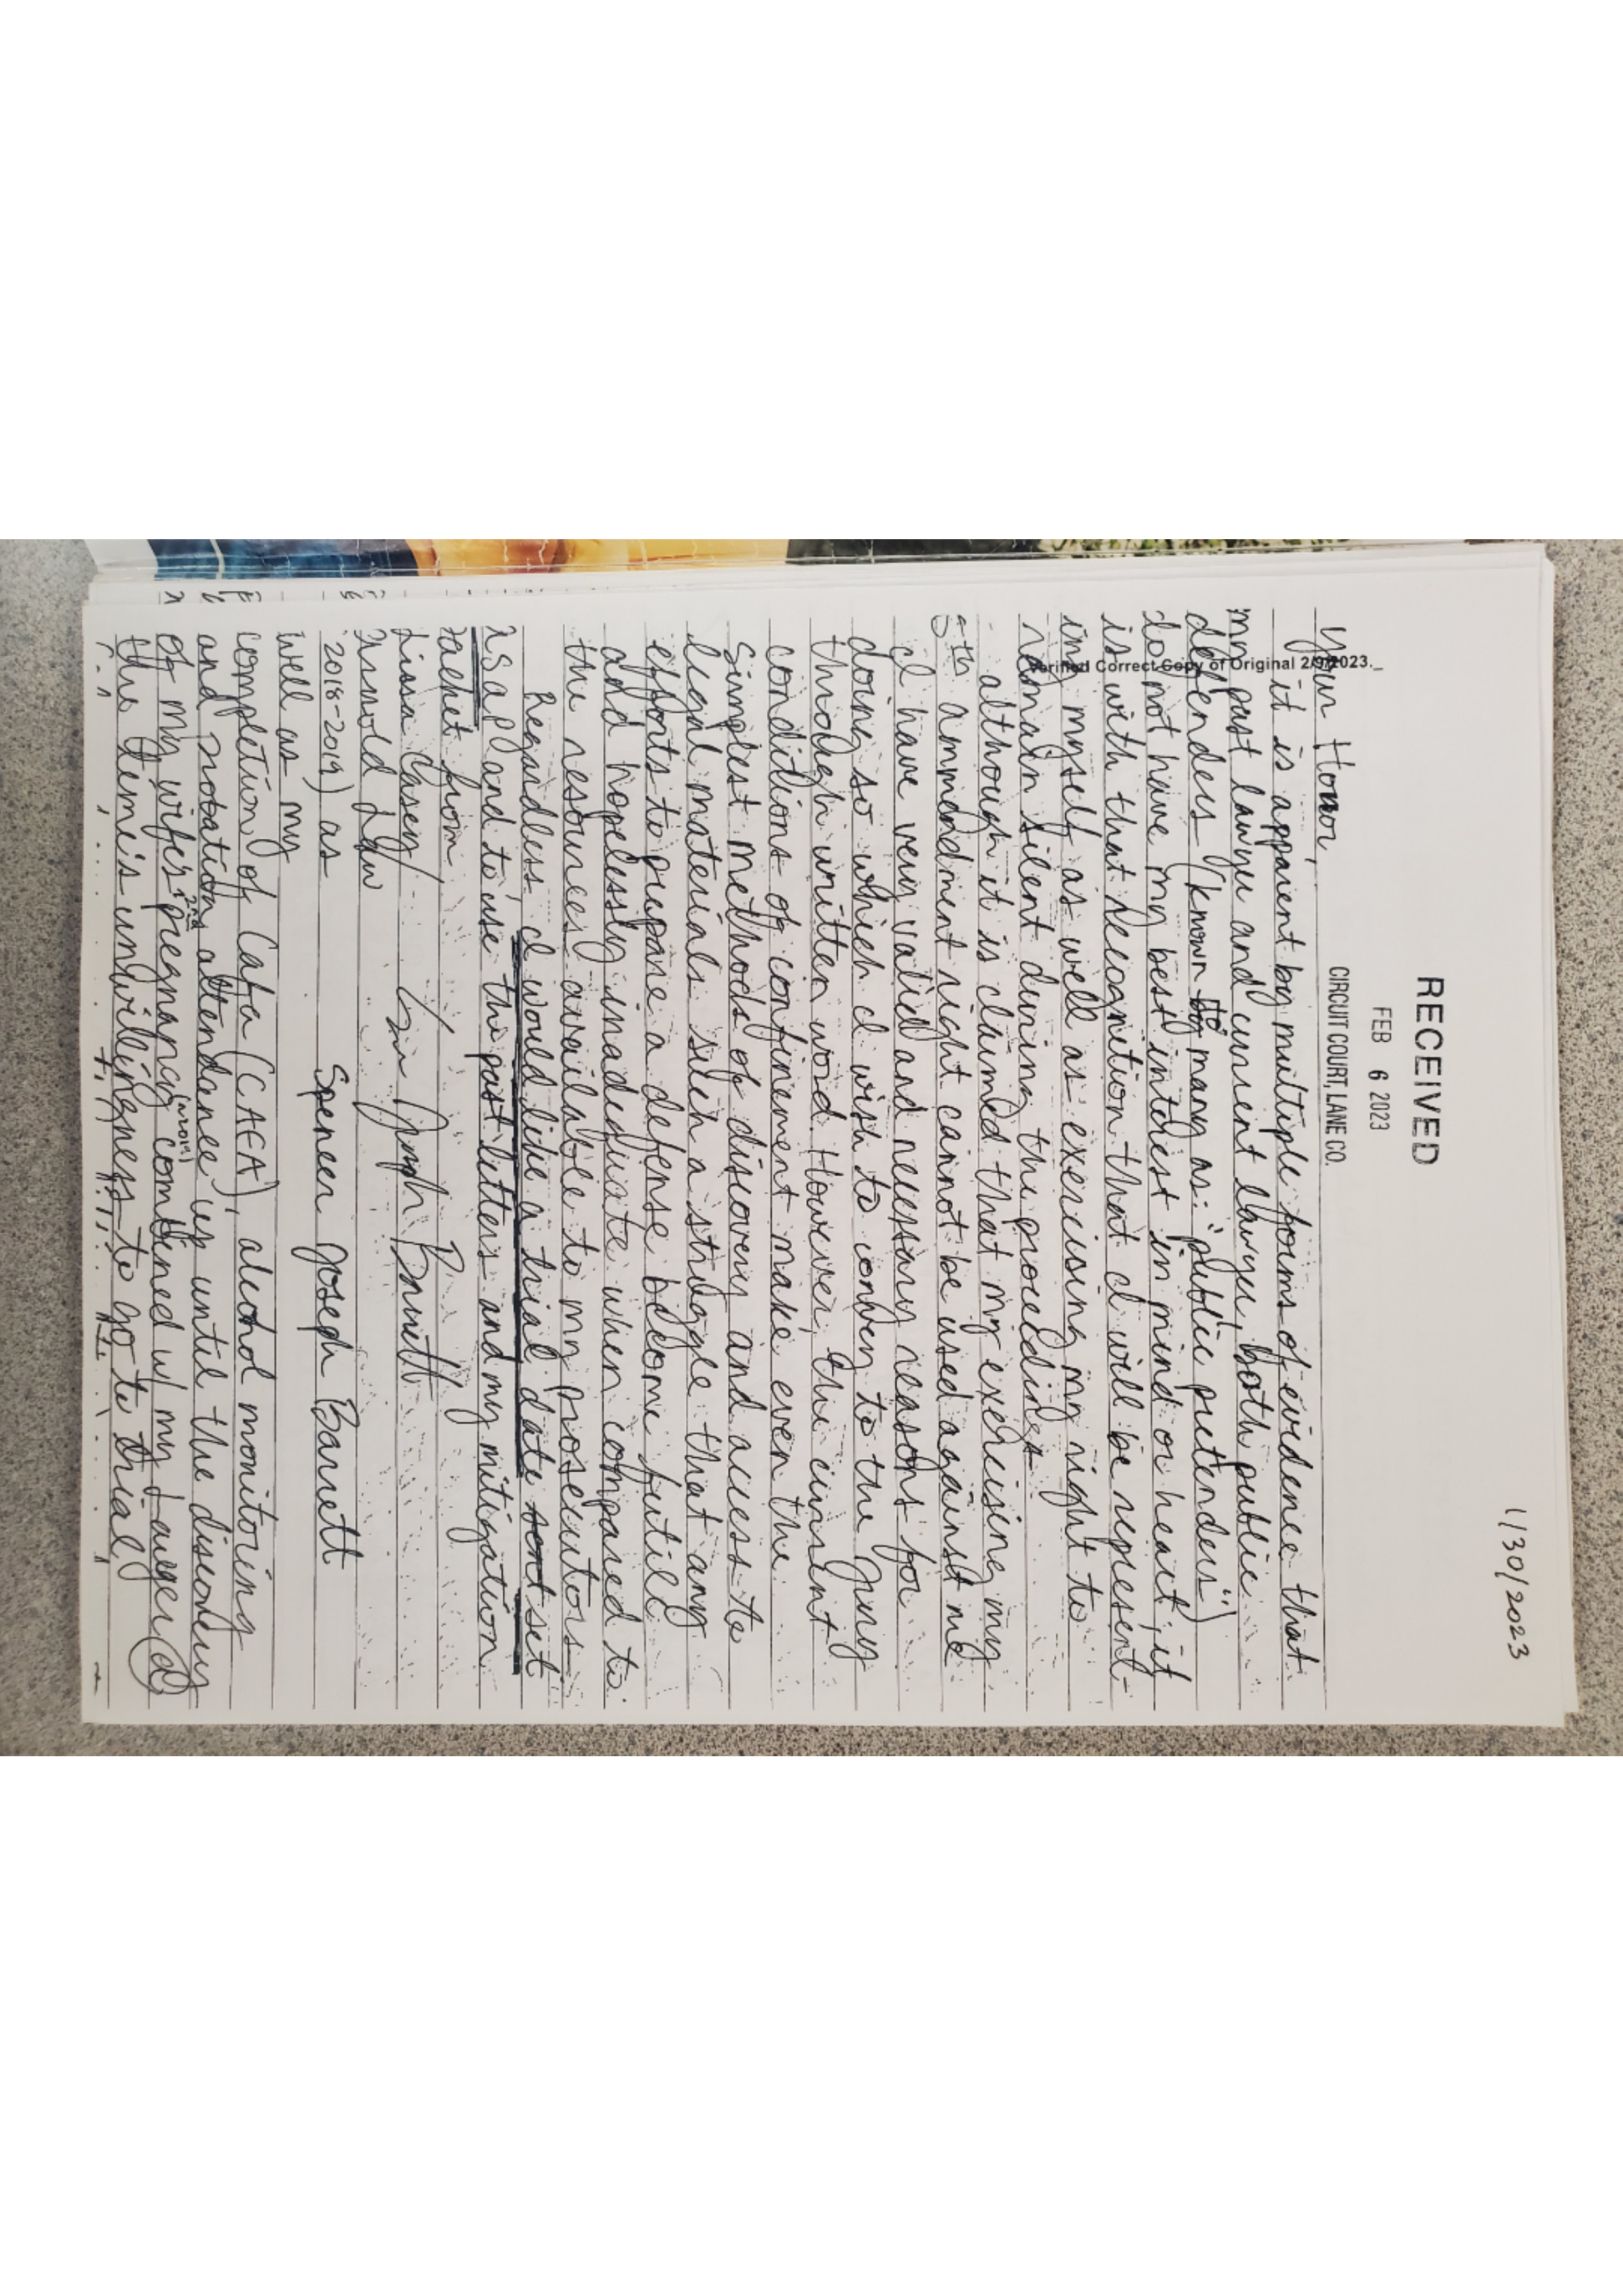 1/30/2023
RECEIVED
FEB 6 2023
CIRCUIT COURT, LANE CO.
Verified Correct Copy of Original 2/9/2023._
Your Honor,
it is apparent by multiple forms of evidence that
my past lawyer and current lawyer, both public
defenders (known to many as: "public pretenders")
do not have my best interest in mind or heart, it
is with that recognition that I will be represent-
ing myself as well as exercising my right to
remain silent during the proceedings
although it is claimed that my exercising my
5th ammendment right cannot be used against me
I have very valid and necessary reasons for
doing so which I wish to convey to the jury
through written word. However, the current
conditions of confinement make even the
simplest methods of discovery and access to
legal materials such a struggle that any
efforts to prepare a defense become futile
and hopelessly inadequate when compared to
the resources available to my prosecutors
Regardless, I would like a trial date sent set
asap and to use the past letters and my mitigation
packet from
Lissa Casey/
Arnold Law
2018-2019) as
Spencer Joseph Barrett
well as my
completion of Cafa (CAFA), alcohol monitoring
and probation attendance up until the discovery
of my wife's 2nd pregnancy combined w/ my lawyer(s)
the time's unwillingness to go to trial